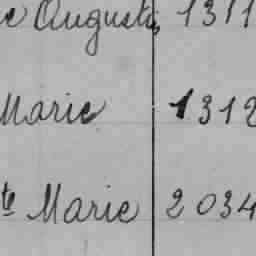 e Auguste, 1311
Marie 1312
te Marie 2034